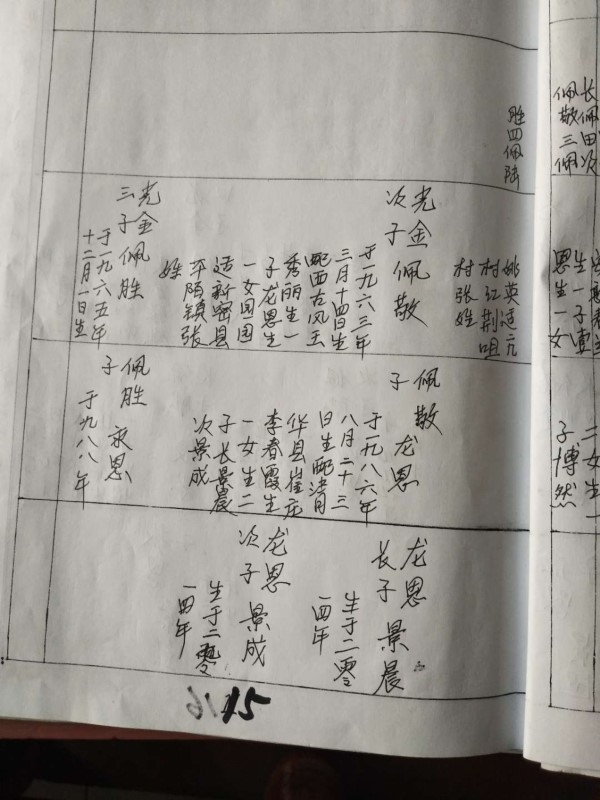 长佩田次
佩敬三佩
胜四佩陆
姚英适亢
村红荆咀
村张姓
光金佩敬
次子
于一九六三年
三月十四日生
配西古风王
秀丽生一
子龙恩生
一女园园
适新密县
平陌镇张
姓
光金佩胜
三子
于一九六五年
十二月一日生
生一子
恩生一女
佩敬龙恩
子
于一九八六年
八月二十三
日生配渚月
华县崔庄
李春霞生
一女生二
子长景晨
次景成
佩胜永恩
子
于九八八年
二女生一
子博然
龙恩景晨
长子
生于二零
一四年
龙恩景成
次子
生于二零
一四年
15
16